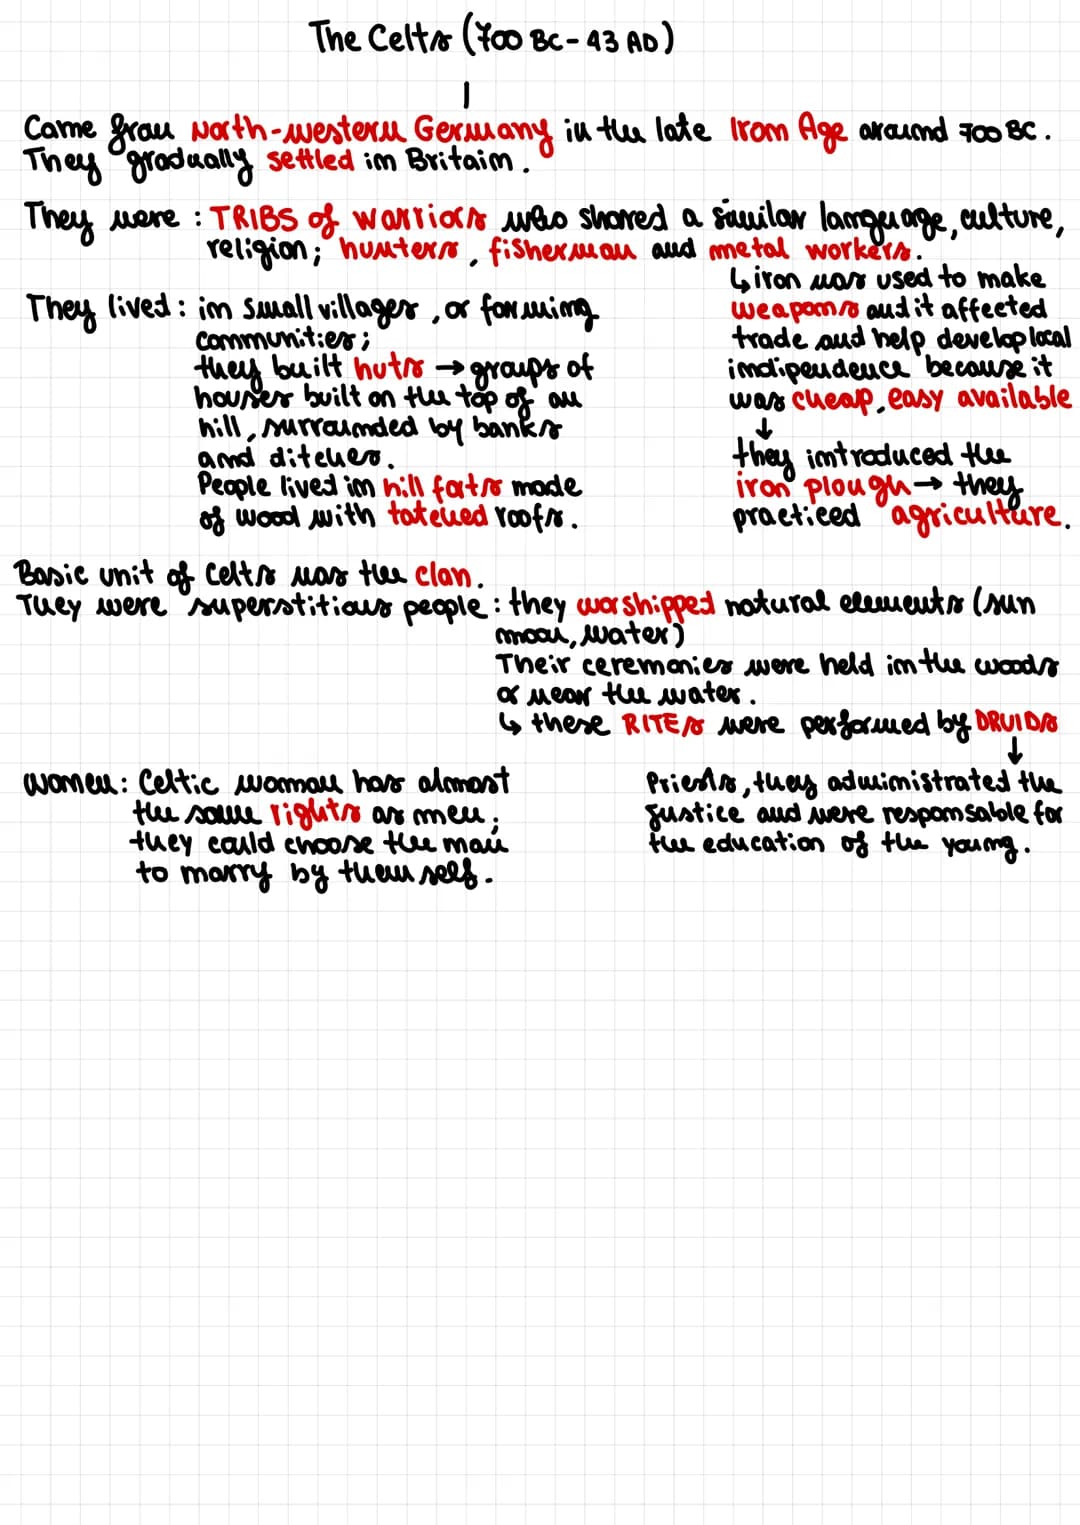 The Celts (700 BC - 43 AD)
Came from North-western Germany in the late Iron Age around 700 BC.
They gradually settled in Britain.
They were : TRIBS of warriors who shared a similar language, culture,
religion; hunters, fisherman and metal workers.
↳ iron was used to make
weapons and it affected
trade and help develop local
indipendence because it
was cheap, easy available
↓
they introduced the
iron plough → they
practiced agriculture.
They lived : in small villages, or forming
communities;
they built huts → groups of
houses built on the top of an
hill, surrounded by banks
and ditches.
People lived in hill forts made
of wood with tatched roofs.
Basic unit of Celts was the clan.
They were superstitious people : they worshipped natural elements (sun
moon, water)
Their ceremonies were held in the woods
or near the water.
↳ these RITEs were performed by DRUIDs
↓
Priests, they administrated the
justice and were responsable for
the education of the young.
Women : Celtic woman has almost
the same rights as men;
they could choose the man
to marry by themself.